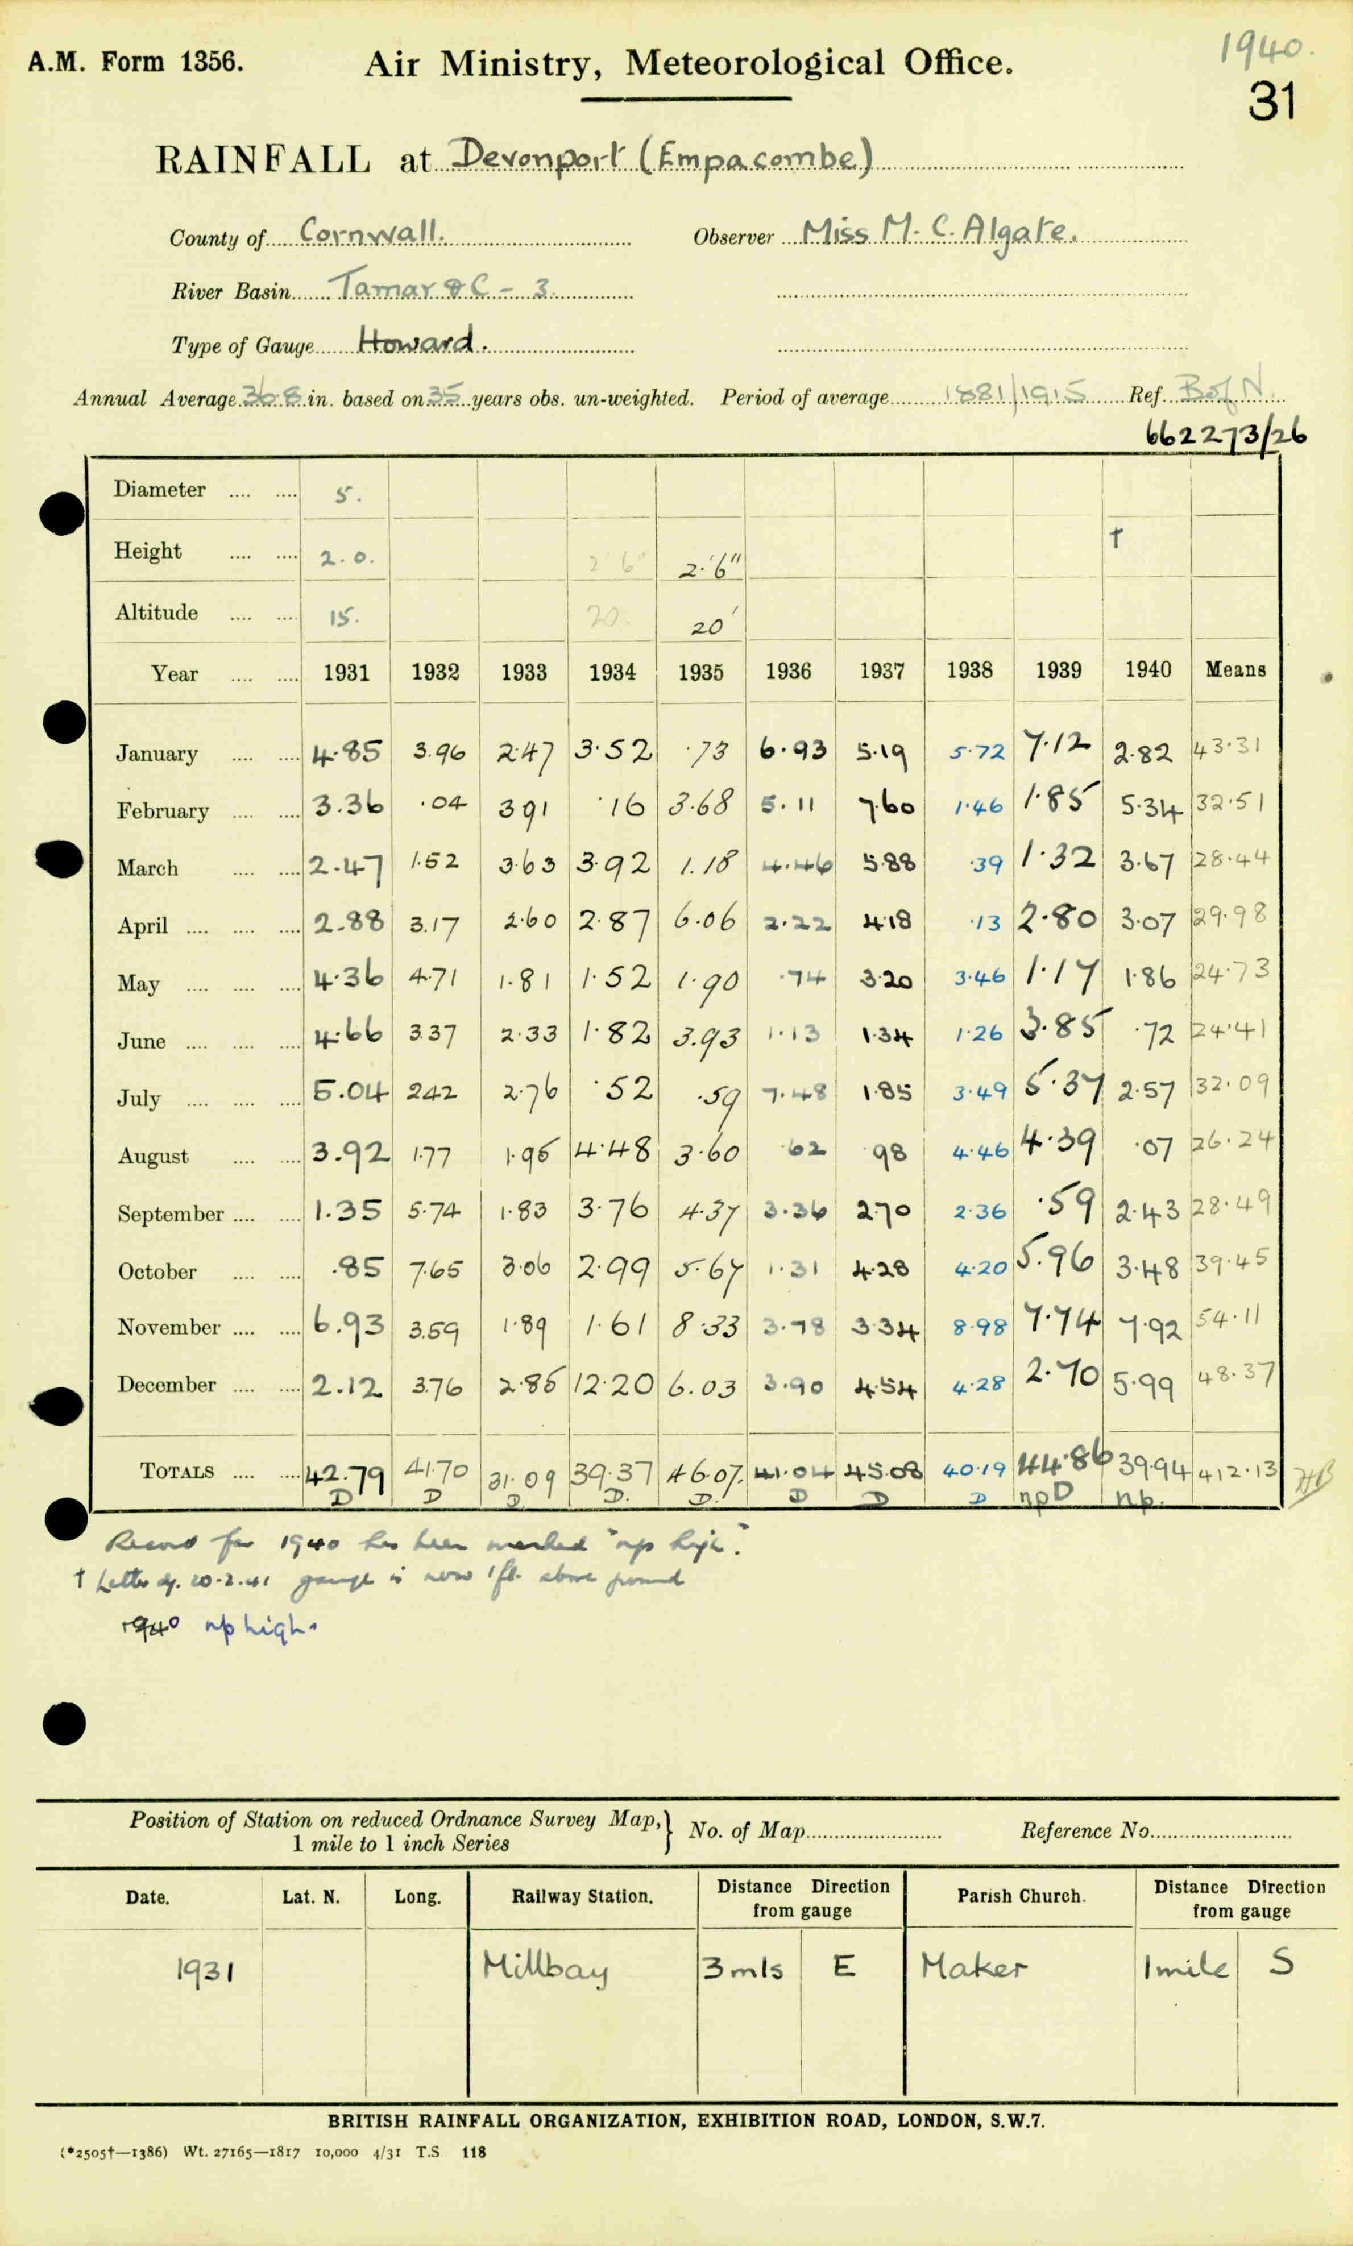 1940.
A.M. Form 1356. Air Ministry, Meteorological Office.
31
RAINFALL at Devonport (Empacombe)
County of Cornwall. Observer Miss M. C. Algate.
River Basin Tamar &C - 3.
Type of Gauge Howard.
Annual Average 36.8 in. based on 35 years obs. un-weighted. Period of average 1881/1915 Ref. B of N
662273/26
Diameter 5.
Height 2.0. 2'6" 2'6" †
Altitude 15. 20. 20'
Year 1931 1932 1933 1934 1935 1936 1937 1938 1939 1940 Means
January 4.85 3.96 2.47 3.52 .73 6.93 5.19 5.72 7.12 2.82 43.31
February 3.36 .04 3 91 .16 3.68 5.11 7.60 1.46 1.85 5.34 32.51
March 2.47 1.52 3.63 3.92 1.18 4.46 5.88 .39 1.32 3.67 28.44
April 2.88 3.17 2.60 2.87 6.06 2.22 4.18 .13 2.80 3.07 29.98
May 4.36 4.71 1.81 1.52 1.90 .74 3.20 3.46 1.17 1.86 24.73
June 4.66 3.37 2.33 1.82 3.93 1.13 1.34 1.26 3.85 .72 24.41
July 5.04 2.42 2.76 .52 .59 7.48 1.85 3.49 5.37 2.57 32.09
August 3.92 1.77 1.95 4.48 3.60 .62 .98 4.46 4.39 .07 26.24
September 1.35 5.74 1.83 3.76 4.37 3.36 2.70 2.36 .59 2.43 28.49
October .85 7.65 3.06 2.99 5.67 1.31 4.28 4.20 5.96 3.48 39.45
November 6.93 3.59 1.89 1.61 8.33 3.78 3.34 8.98 7.74 7.92 54.11
December 2.12 3.76 2.85 12.20 6.03 3.90 4.54 4.28 2.70 5.99 48.37
TOTALS 42.79 41.70 31.09 39.37 46.07. 41.04 45.08 40.19 44.86 39.94 412.13
D D D D. D. D D D npD np.
Record for 1940 has been marked "np high".
† Letter of. 20.2.41 gauge is now 1ft. above ground
1940 np high.
Position of Station on reduced Ordnance Survey Map, } No. of Map Reference No.
1 mile to 1 inch Series
Date. Lat. N. Long. Railway Station. Distance Direction from gauge Parish Church. Distance Direction from gauge
1931 Millbay 3 mls E Maker 1 mile S
BRITISH RAINFALL ORGANIZATION, EXHIBITION ROAD, LONDON, S.W.7.
(*2505†—1386) Wt. 27165—1817 10,000 4/31 T.S 118